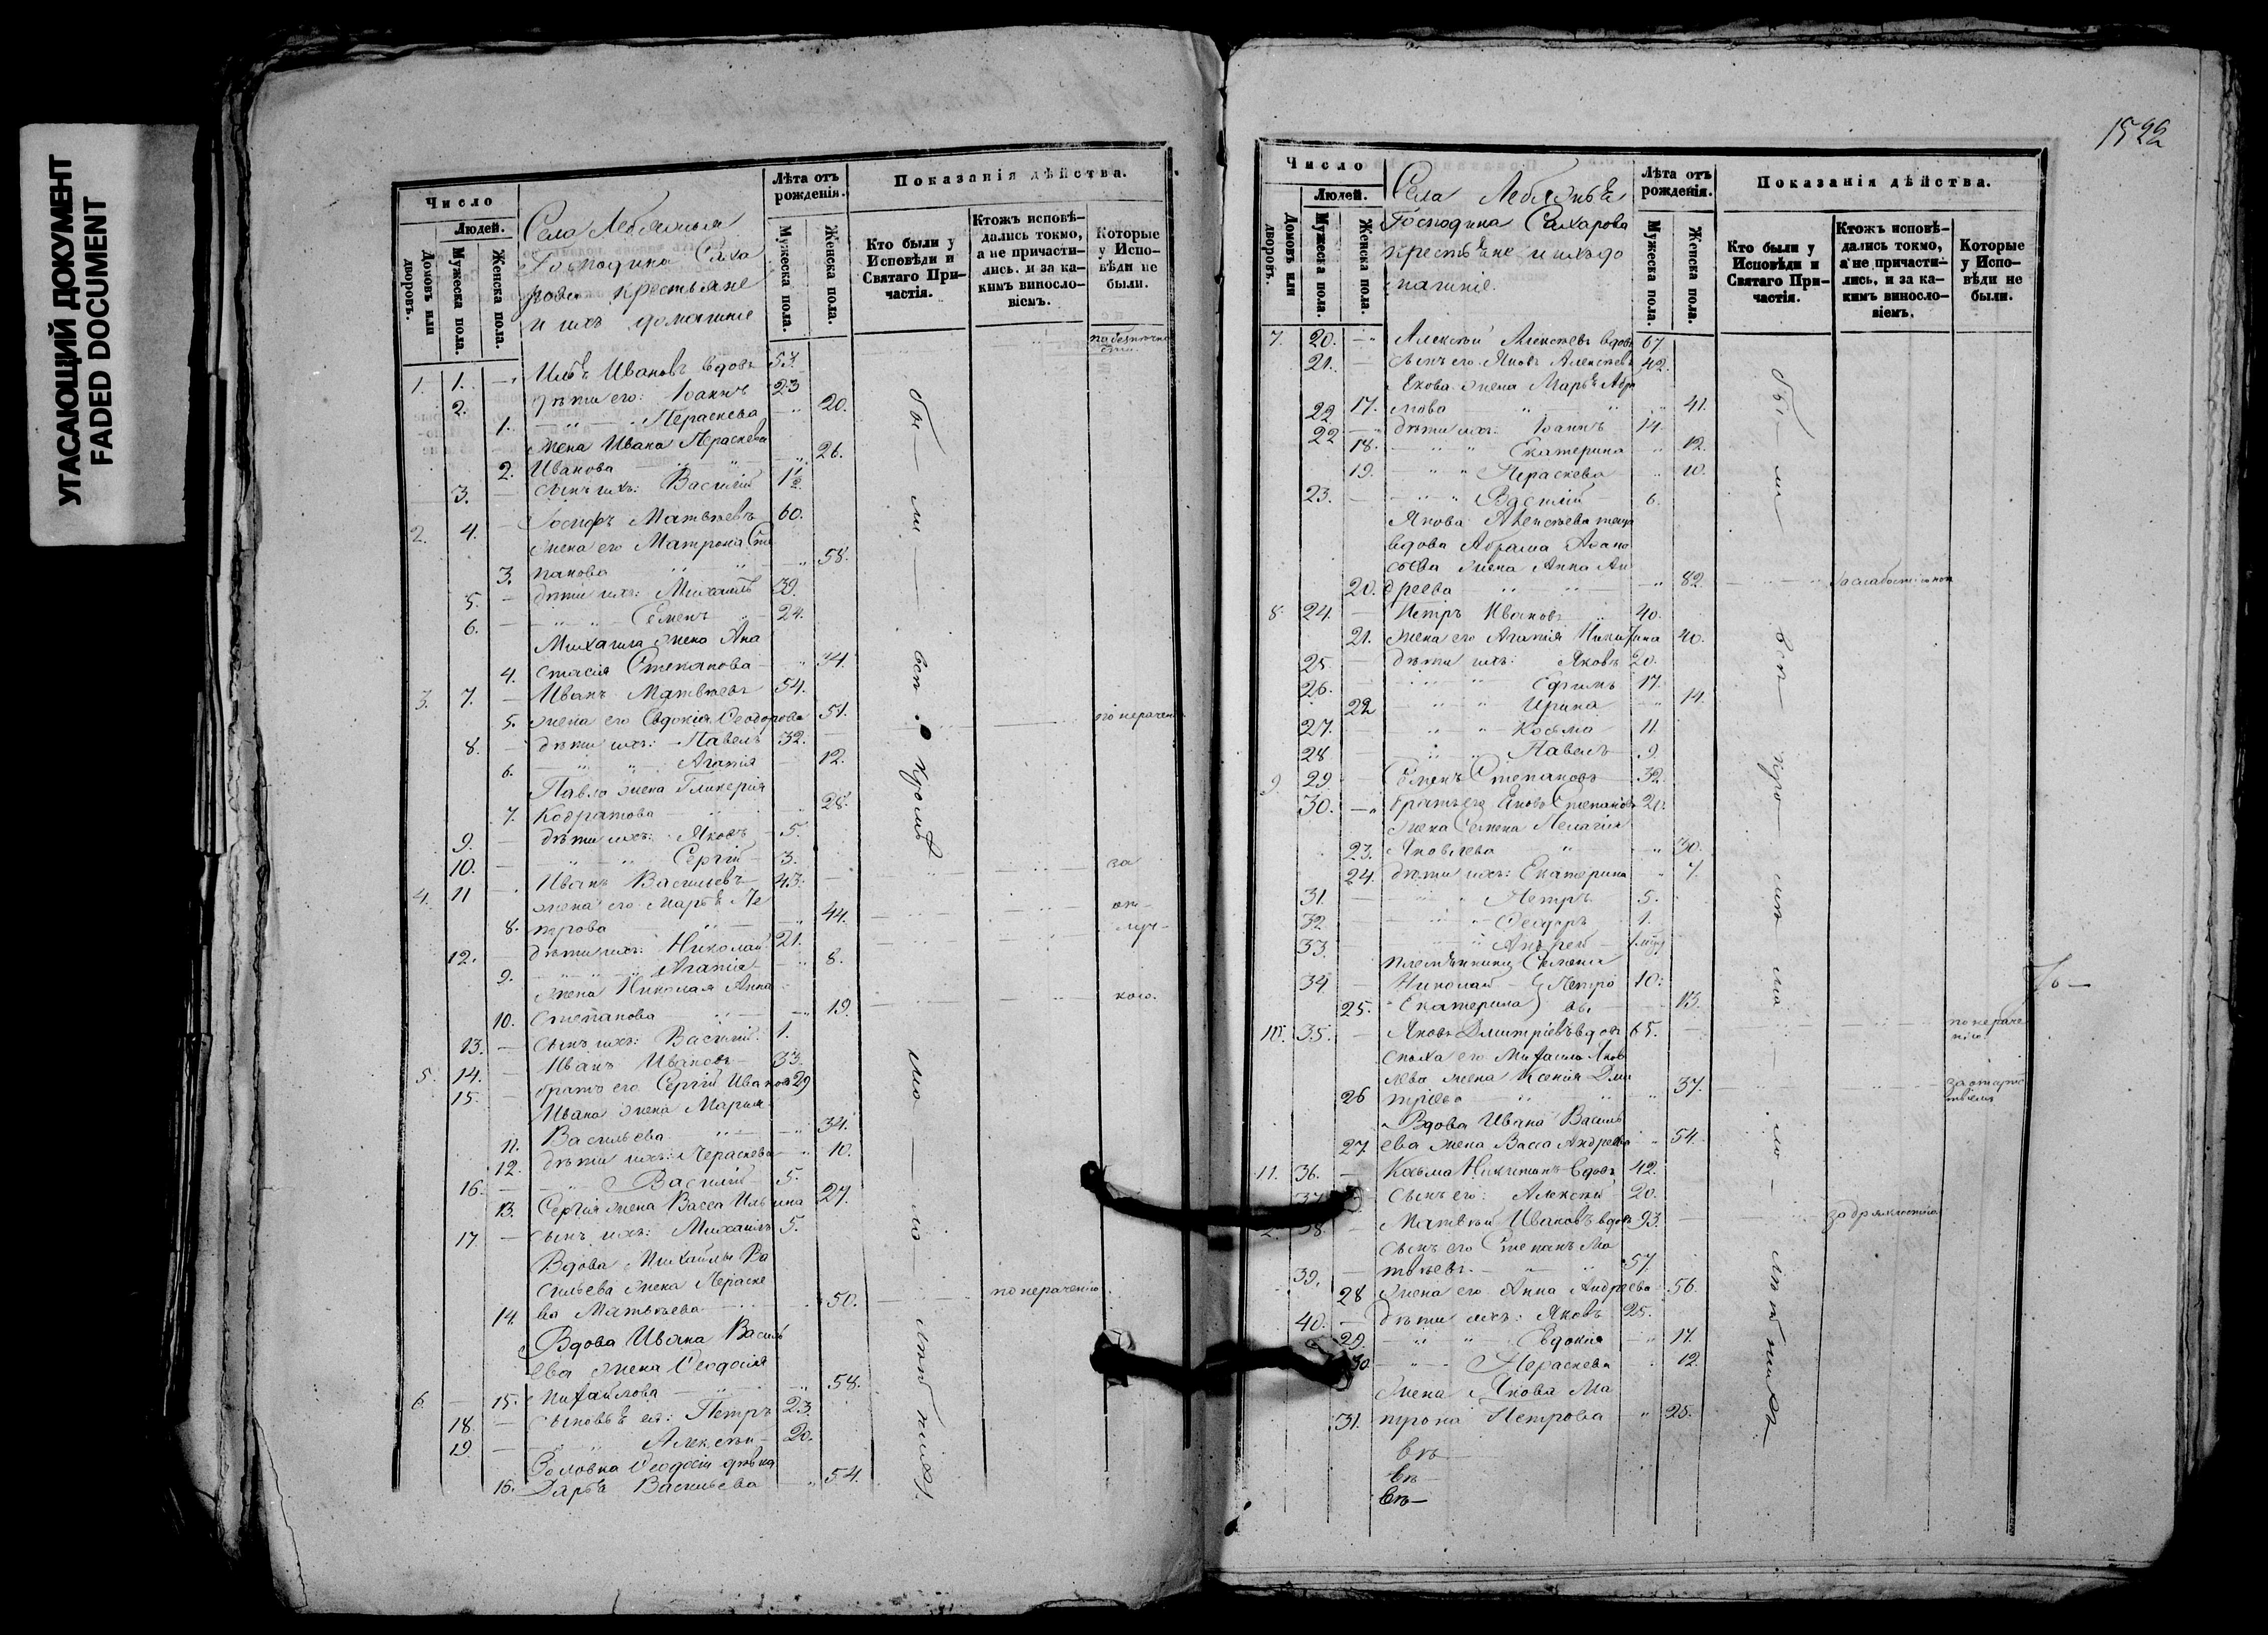 УГАСАЮЩИЙ ДОКУМЕНТ
FADED DOCUMENT
Число
Людей.
Домовъ или дворовъ.
Мужеска пола.
Женска пола.
Села Лебяжья
Господина Саха
рова крестьяне
и ихъ домашніе
Лѣта отъ рожденія.
Мужеска пола.
Женска пола.
Показанія дѣйства.
Кто были у Исповѣди и Святаго Причастія.
Ктожъ исповѣдались токмо, а не причастились. и за какимъ винословіемъ.
Которые у Исповѣди не были.
1. 1. — Ивановъ вдовъ 53.
2. дѣти его: Іоаннъ 23
1. Параскева 20.
жена Ивана Параскева
2. Иванова 26.
3. — сынъ ихъ: Василій
2. 4. — Іосифъ Матвѣевъ 60.
жена его Матрона Сте
3. панова 58.
5. — дѣти ихъ: Михаилъ 39.
6. — Семенъ 24.
Михаила жена Ана
4. стасія Степанова 34.
3. 7. — Иванъ Матвѣевъ 54.
5. жена его Евдокія Ѳеодорова 51. по нерачен
8. — дѣти ихъ: Павелъ 32.
6. Агапія 12.
Павла жена Гликерія
7. Кодратова 28.
9. — дѣти ихъ: Яковъ 5.
10. — Сергій 3.
4. 11 — Иванъ Васильевъ 43. за
жена его Марья Пе
8. трова 44. от-
12. — дѣти ихъ: Николай 21. луч-
9. Агапія 8.
жена Николая Анна
10. Степанова 19. кою.
13. — сынъ ихъ: Василій 1.
5. 14. — Иванъ Ивановъ 33.
15. — братъ его Сергій Ивановъ 29
Ивана жена Марья
11. Васильева 34.
12. дѣти ихъ: Параскева 10.
16. — Василій 5.
13. Сергія жена Васса Ильина 27.
17. — сынъ ихъ: Михаилъ 5.
Вдова Михайлы Ва
сильева жена Параске
14. ва Матвѣева 50. по нераченію
Вдова Ивана Василь
ева жена Ѳеодосія
6. — 15. Михайлова 58.
18. — сыновья ея: Петръ 23.
19. — Алексѣй 20.
Золовка Ѳеодосіи дѣвка
16. Дарья Васильева 54.
бы — ли — всѣ кромѣ ма — ло — лѣтнихъ
1522
Число
Людей.
Домовъ или дворовъ.
Мужеска пола.
Женска пола.
Села Лебяжья
Господина Сахарова
крестьяне и ихъ до
машніе.
Лѣта отъ рожденія.
Мужеска пола.
Женска пола.
Показанія дѣйства.
Кто были у Исповѣди и Святаго Причастія.
Ктожъ исповѣдались токмо, а не причастились, и за какимъ винословіемъ.
Которые у Исповѣди не были.
7. 20. — Алексѣй Алексѣевъ вдовъ 67.
21. — сынъ его Яковъ Алексѣевъ 42.
Якова жена Марья Абра
17. мова 41.
22 — дѣти ихъ: Іоаннъ 14.
18. Екатерина 12.
19. Параскева 10.
23. — Василій 6.
Якова Алексѣева теща
вдова Абрама Афана
сьева жена Анна Ан
20. дреева 82. за слабостію
8. 24. — Петръ Ивановъ 40.
21. жена его Агапія Никитина 40.
25. — дѣти ихъ: Яковъ 20.
26. — Ефимъ 17.
22 Ирина 14.
27. — Косма 11.
28 — Павелъ 9.
9. 29. — Семенъ Степановъ 32.
30. — братъ его Яковъ Степановъ 20.
жена Семена Пелагія
23. Яковлева 30.
24. дѣти ихъ: Екатерина 7.
31. — Петръ 5.
32. — Ѳеодоръ 1.
33. — Андрей
племянники Семена
34. — Николай Петро 10.
25. Екатерина вы 13.
10. 35. — Яковъ Дмитріевъ вдовъ 65. по нераче
нію.
сноха его Михаила Яков
лева жена Ксенія Дми
26 тріева 37.
Вдова Ивана Василь
27. ева жена Васса Андреева 54.
11. 36. — Козьма Никитинъ вдовъ 42.
37. сынъ его: Алексѣй 20.
38. — Матвѣй Ивановъ вдовъ 93. за дряхлостію
сынъ его Степанъ Ма
39. — твѣевъ 57.
28 жена его Анна Андреева 56.
40. — дѣти ихъ: Яковъ 25.
29. Евдокія 17.
30 Параскева 12.
жена Якова Ма
31. трона Петрова 25.
бы — ли всѣ кро — мѣ ма — ло — лѣтнихъ